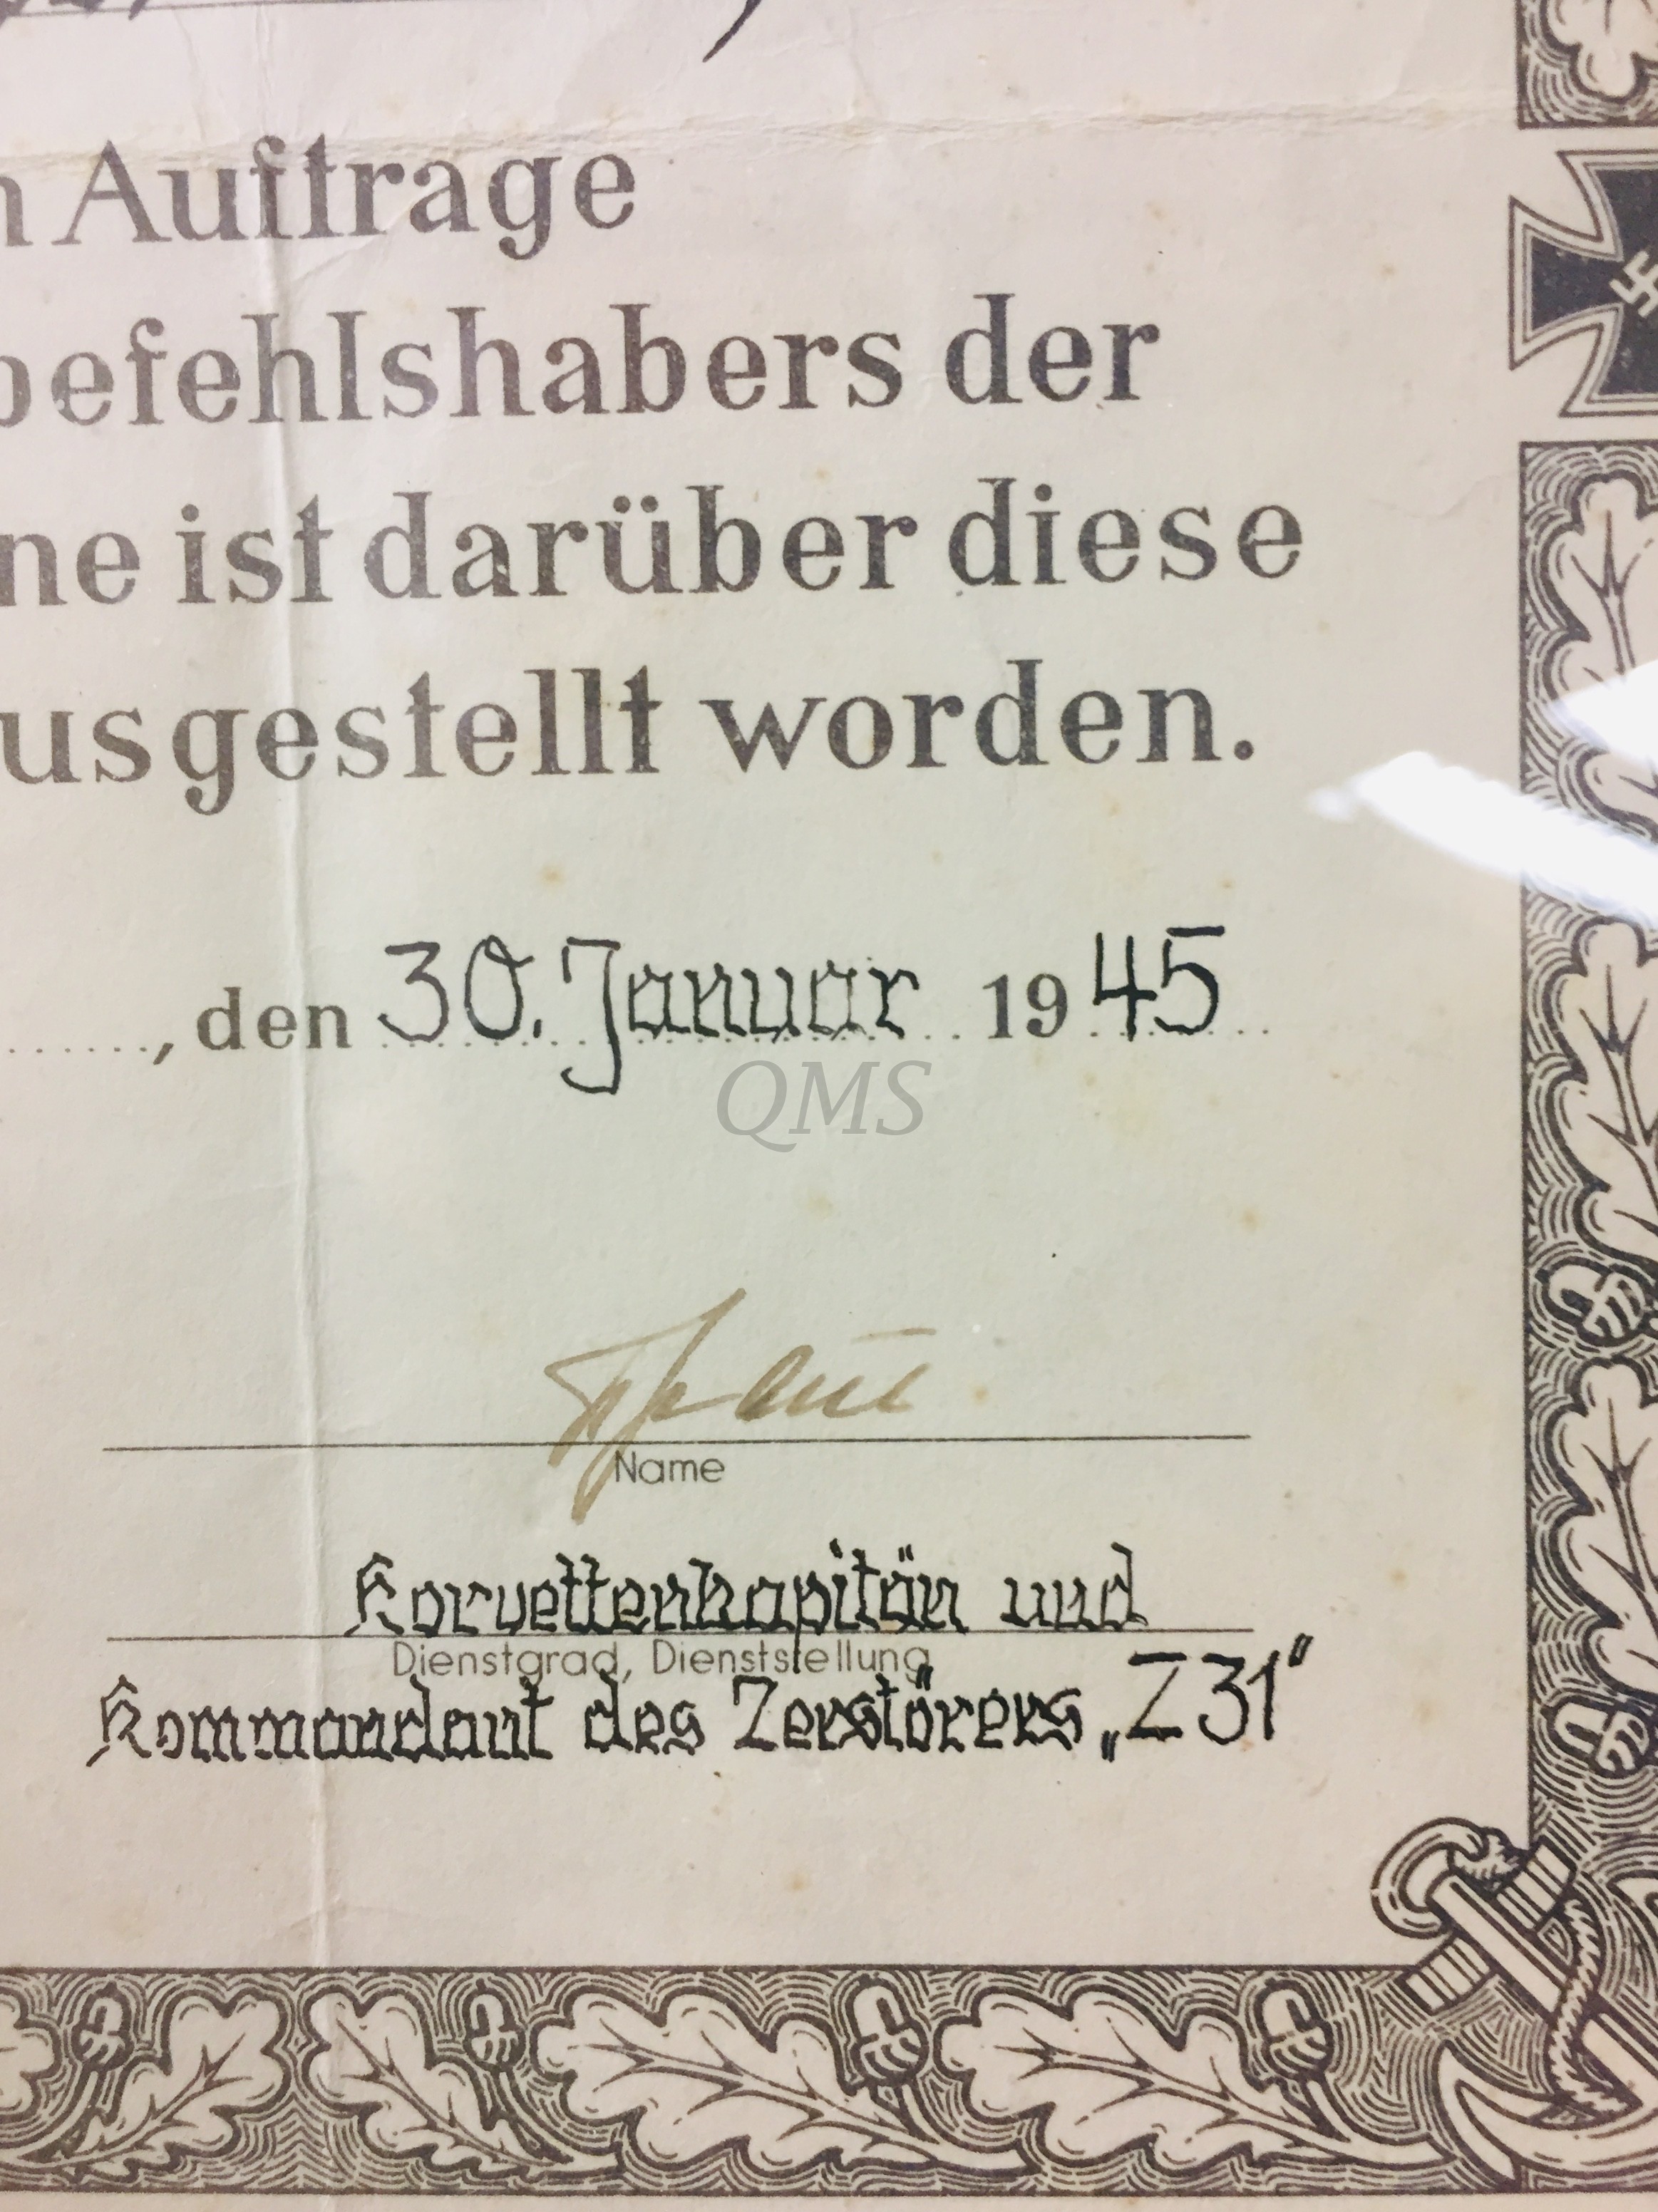 Auftrage
befehlshabers der
ne ist darüber diese
usgestellt worden.
, den 30. Januar 1945
QMS
Name
Korvettenkapitän und
Dienstgrad, Dienststellung
Kommandant des Zerstörers „Z31“